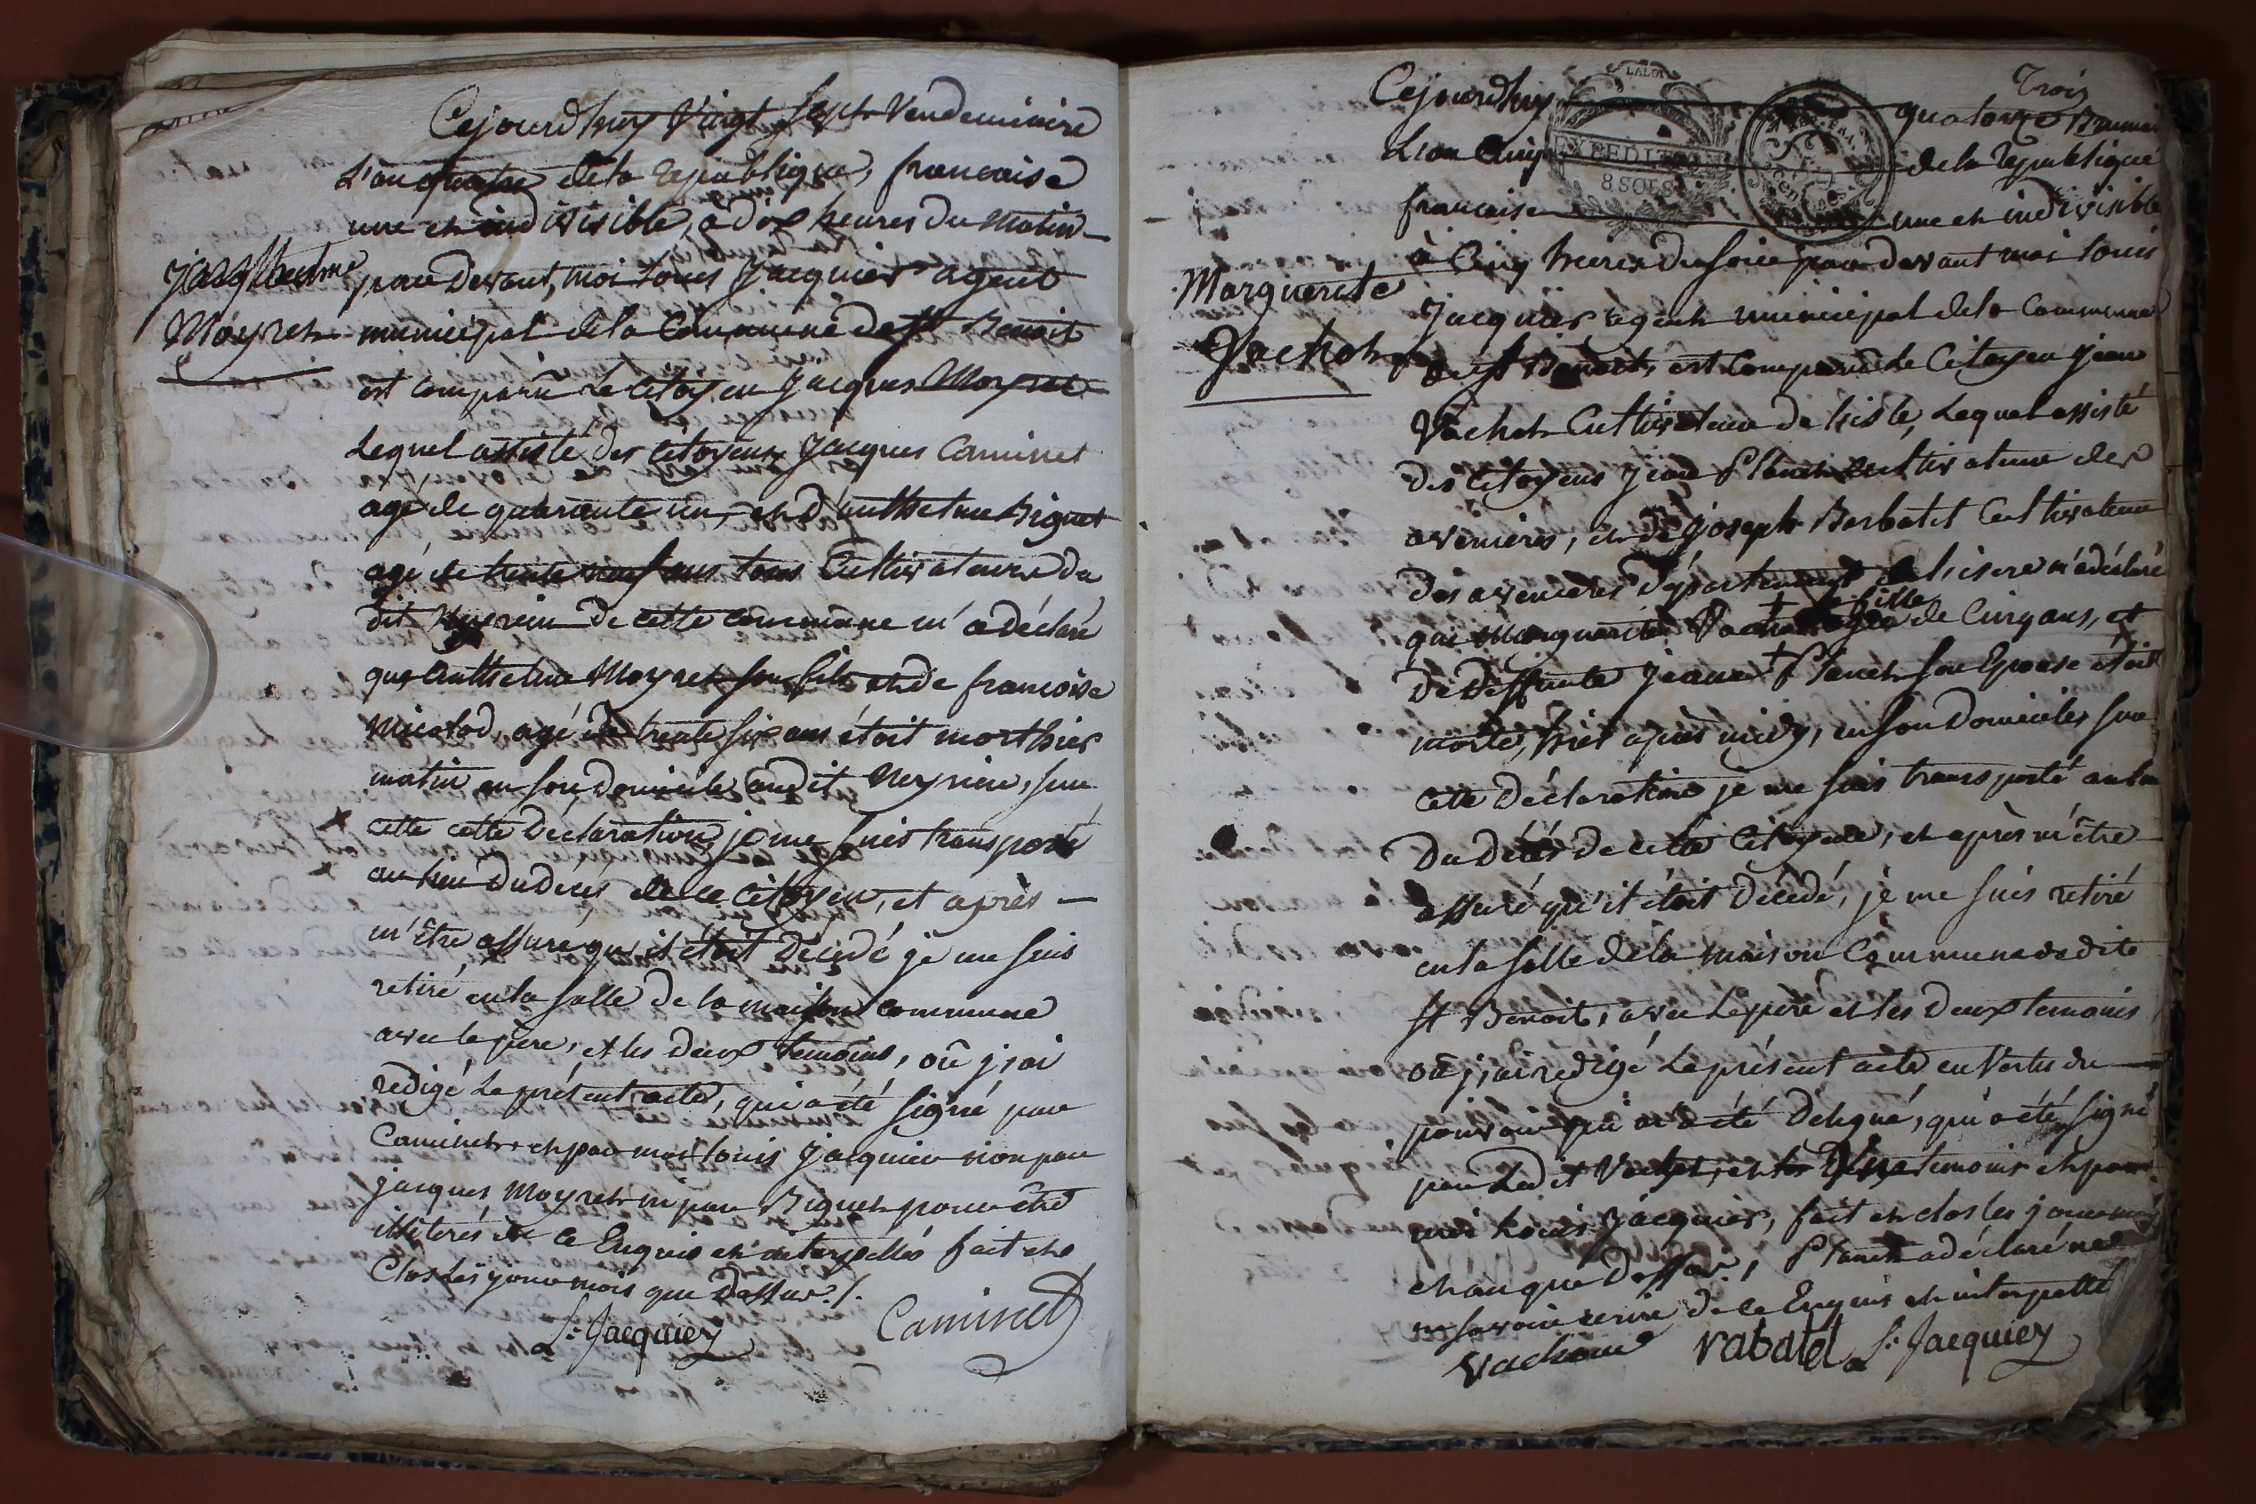 Cejourdhuy Vingt sept Vendemiaire
L'an quatre dela republique, francaise
une et indivisible, a dix heures du matin
pardevant, moi Louis Jacquier agent
Moyret
municipal dela Commune de St Benoit
est comparu Le Citoyen Jacques Moyret
Lequel assisté des Citoyens Jacques Caminet
agé de quarante un, et d'anthelme Biguet
agé de trente neuf ans tous Cultivateurs du
dit de cette commune m'a déclaré
que anthelme Moyret son fils et de francoise
agé de trente six ans étoit mort hier
matin en son domicile audit sur
cette cette Déclaration je me suis transporté
au lieu du décés de ce citoyen, et après
m'être assuré qu'il étoit décédé je me suis
retiré en la salle de la maison commune
avec le père, et les deux temoins, où j'ai
redigé Le présent acte, qui a été signé par
Caminet et par moi Louis Jacquier non par
jacques Moyret ni par Biguet pour être
illiterés de ce Enquis et interpellés fait et
Clos Les jour mois que Dessus ./.
L. Jacquier
Caminet
Trois
Cejourdhuy quatorze Brumai
L'an Cinq de la republique
francaise une et indivisible
LALOI
EXPEDITION
8 SOLS
à Cinq heures du soir par devant moi Louis
Marguerite
Jacquier agent municipal dela Commune
Vachot
de St Benoit, est Comparu Le Citoyen Jean
Vachot Cultivateur de Lequel assisté
des Citoyens Jean Planet Cultivateur des
avenieres, et de Joseph Cultivateur
des avenieres département de L'isere m'a déclaré
fille
que Marguerite agée de Cinq ans, et
de Deffunte Jeanne Planet son Epouse étoit
morte, hier après midy, en son Domicile, sur
cette déclaration je me suis transporté au lieu
Du Décés de cette Citoyene, et après m'être
assuré qu'il étoit Décedé, je me suis retiré
en la salle de la maison Commune de dite
St Benoit, avec Le père et les Deux temoins
où j'ai redigé Le présent acte en Vertu du
pouvoir qui m'a été Délegué, qui a été signé
par Ledit Vachot, et temoins et par
moi Louis Jacquier, fait et clos les jour mois
et an que Dessus, Planet a déclaré ne
savoir ecrire de ce Enquis et interpellé
Rabatel L. Jacquier